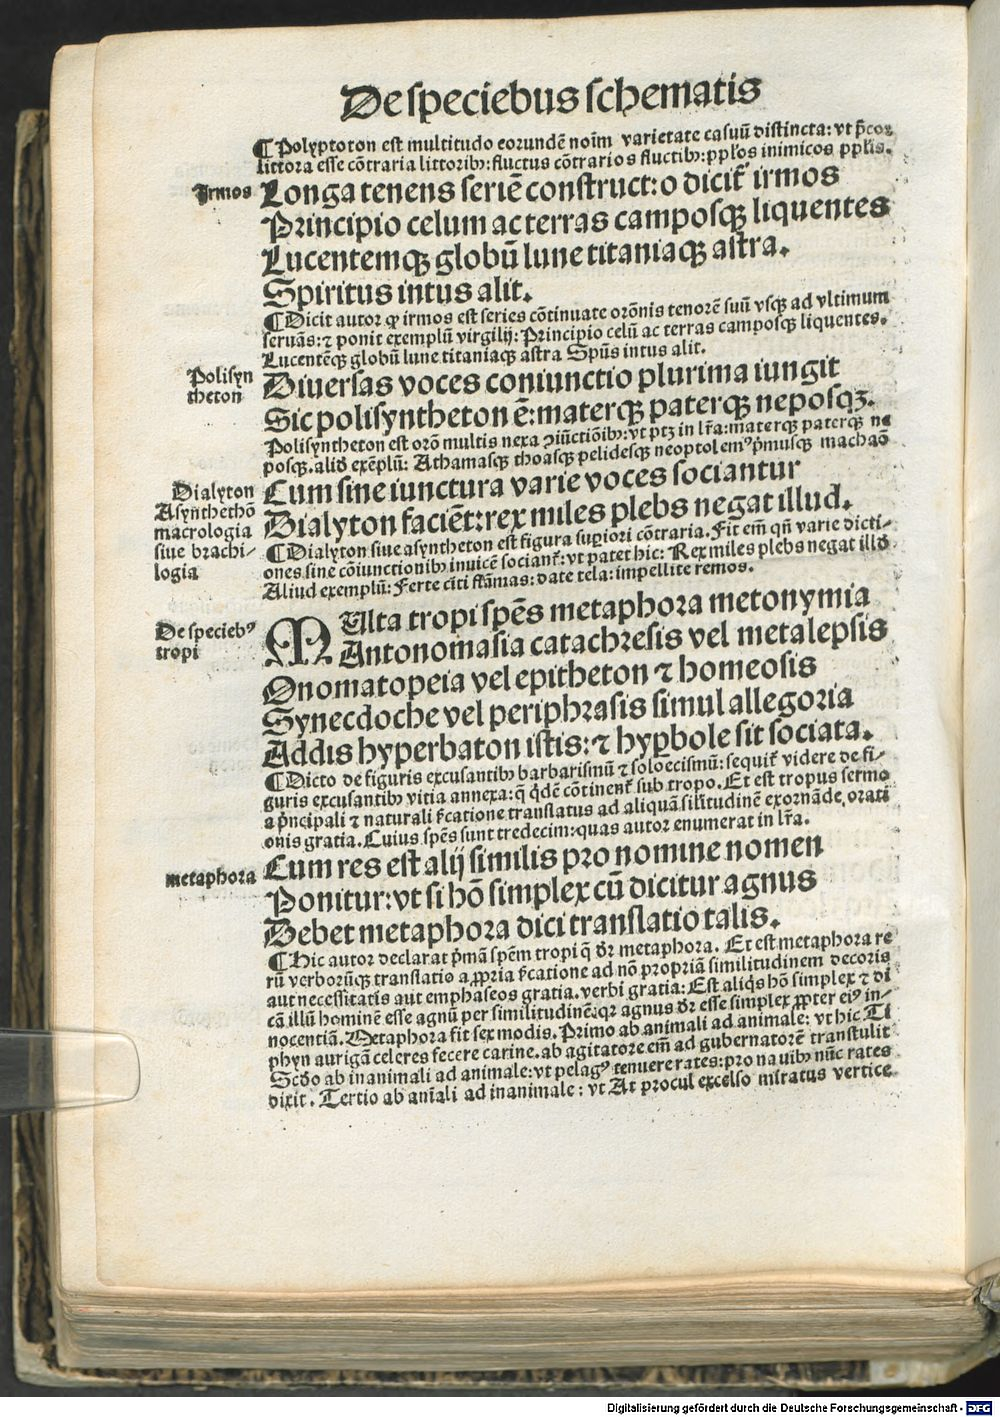 De speciebus schematis
¶ Polyptoton est multitudo eorundē noīm varietate casuū distincta: vt p̄cor
littora esse cōtraria littoribꝰ: fluctus cōtrarios fluctibꝰ: pplōs inimicos pplis.
Irmos
Longa tenens seriē construct:o dicit᷑ irmos
Principio celum ac terras camposqꝫ liquentes
Lucentemqꝫ globū lune titaniaqꝫ astra.
Spiritus intus alit.
¶ Dicit autor ꝙ irmos est series cōtinuate orōnis tenorē suū vsqꝫ ad vltimum
seruās: ⁊ ponit exemplū virgilij: Principio celū ac terras camposqꝫ liquentes.
Lucentēqꝫ globū lune titaniaqꝫ astra Spūs intus alit.
Polisyn
theton
Diuersas voces coniunctio plurima iungit
Sic polisyntheton ē: materqꝫ paterqꝫ neposqꝫ.
Polisyntheton est orō multis nexa ꝯiūctiōibꝰ: vt ptꝫ in lr̄a: materqꝫ paterqꝫ ne
posqꝫ. aliđ exēplū: Athamasqꝫ thoasqꝫ pelidesqꝫ neoptolemꝰ p̄musqꝫ machaō
Dialyton
Asynthethō
macrologia
siue brachi-
logia
Cum sine iunctura varie voces sociantur
Dialyton faciēt: rex miles plebs negat illud.
¶ Dialyton siue asyntheton est figura supiori cōtraria. Fit em̄ qn̄ varie dicti-
ones sine cōiunctionibꝰ inuicē sociant᷑: vt patet hic: Rex miles plebs negat illđ
Aliud exemplū: Ferte citi flāmas: date tela: impellite remos.
De speciebꝰ
tropi
MUlta tropi spēs metaphora metonymia
Antonomasia catachresis vel metalepsis
Onomatopeia vel epitheton ⁊ homeosis
Synecdoche vel periphrasis simul allegoria
Addis hyperbaton istis: ⁊ hyꝑbole sit sociata.
¶ Dicto de figuris excusantibꝰ barbarismū ⁊ soloecismū: sequit᷑ videre de fi-
guris excusantibꝰ vitia annexa: q̄ q̇dē cōtinent᷑ sub tropo. Et est tropus sermo
a p̄ncipali ⁊ naturali s̄catione translatus ad aliquā silitudinē exornāde orati
onis gratia. Cuius spēs sunt tredecim: quas autor enumerat in lr̄a.
metaphora
Cum res est alij similis pro nomine nomen
Ponitur: vt si hō simplex cū dicitur agnus
Debet metaphora dici translatio talis.
¶ Hic autor declarat p̄mā spēm tropi q̄ dr̄ metaphora. Et est metaphora re
rū verborūqꝫ translatio a ꝓpria s̄catione ad nō propriā similitudinem decoris
aut necessitatis aut emphaseos gratia. verbi gratia: Est aliq̇s hō simplex ⁊ di
cā illū hominē esse agnū per similitudinē: qꝛ agnus dr̄ esse simplex ꝓpter eiꝰ in-
nocentiā. Metaphora fit sex modis. Primo ab animali ad animale: vt hic Ti
phyn aurigā celeres fecere carine. ab agitatore em̄ ad gubernatorē transtulit
Scđo ab inanimali ad animale: vt pelagꝰ tenuere rates: pro nauibꝰ nūc rates
dixit. Tertio ab aīali ad inanimale: vt At procul excelso miratus vertice
Digitalisierung gefördert durch die Deutsche Forschungsgemeinschaft - DFG